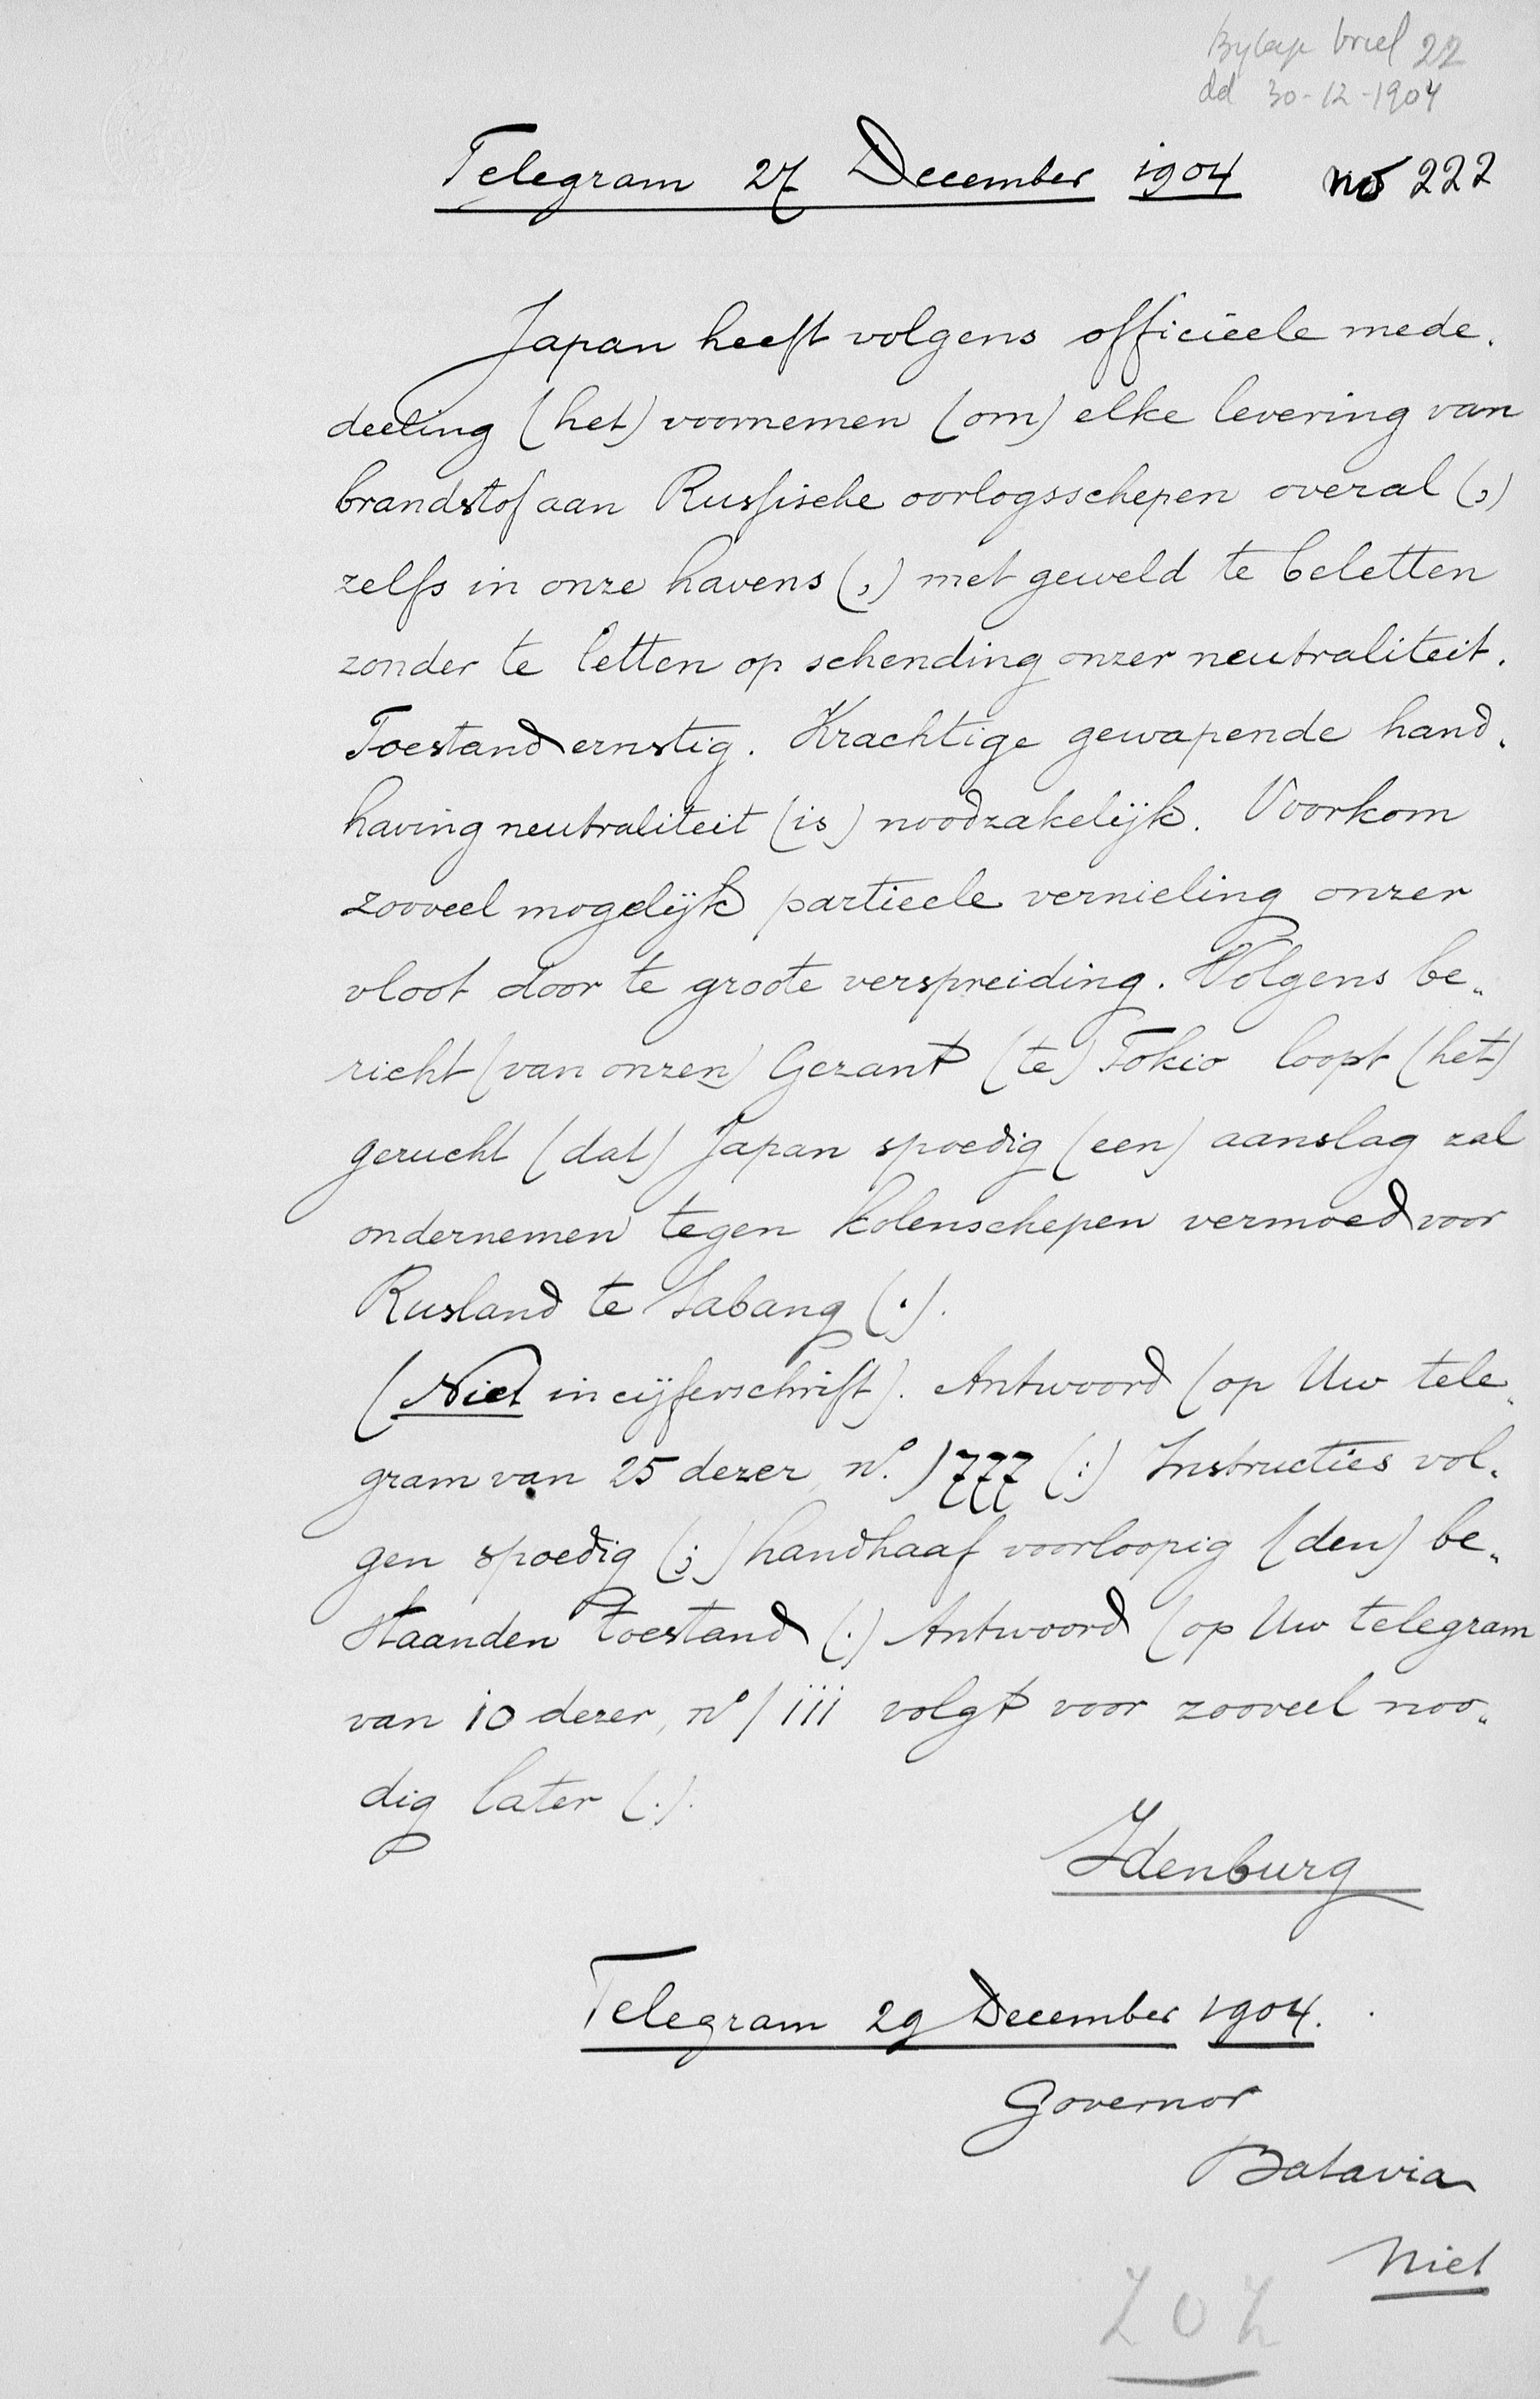 Bylage brief 22
dd 30-12-1904
Telegram 27 December 1904 no 222
Japan heeft volgens officieele mede„
deeling (het) voornemen (om) elke levering van
brandstof aan Russische oorlogsschepen overal (,)
zelfs in onze havens (,) met geweld te beletten
zonder te letten op schending onzer neutraliteit.
Toestand ernstig. Krachtige gewapende hand„
having neutraliteit (is) noodzakelijk. Voorkom
zooveel mogelijk partieele vernieling onzer
vloot door te groote verspreiding. Volgens be„
richt (van onzen) Gezant (te) Tokio loopt (het)
gerucht (dat) Japan spoedig (een) aanslag zal
ondernemen tegen kolenschepen vermoed voor
Rusland te Sabang (.).
(Niet in cijferschrift). Antwoord (op Uw tele„
gram van 25 dezer, no. ) 777 (:) Instructies vol„
gen spoedig (;) handhaaf voorloopig (den) be„
staanden toestand (.) Antwoord (op Uw telegram
van 10 dezer, no ) 111 volgt voor zooveel noo„
dig later (.).
Idenburg
Telegram 29 December 1904.
Governor
Batavia
Niet
202